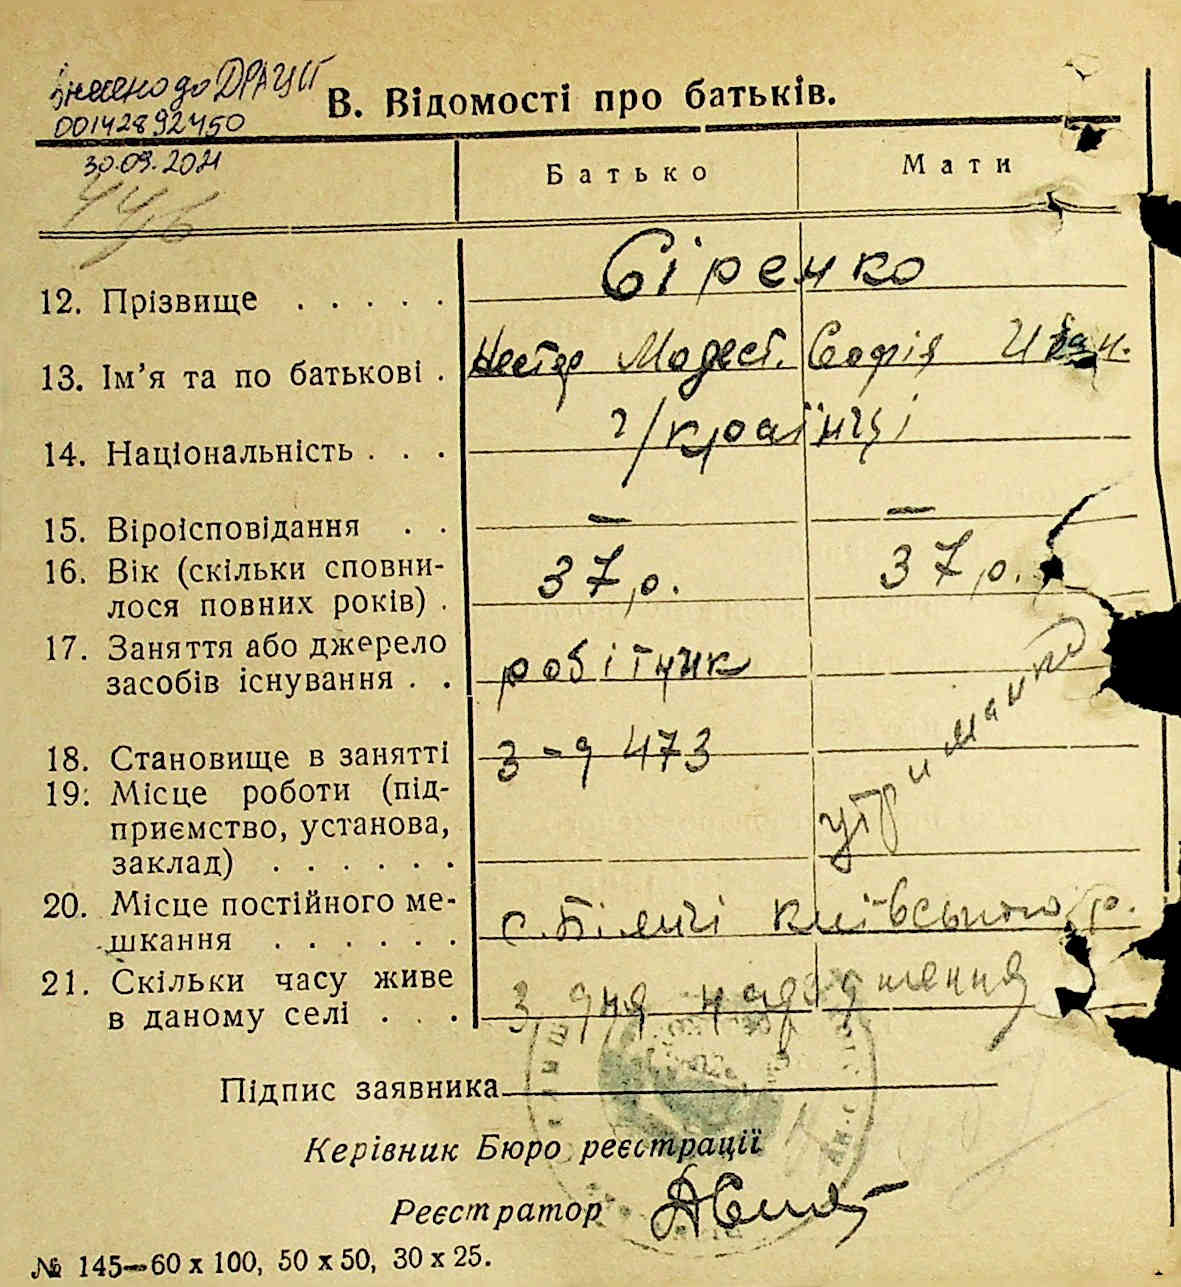 внесено до ДРАЦСГ
00142892450
30.09.2021
446
В. Відомості про батьків.
Батько Мати
12. Прізвище . . . . . Сіренко
13. Ім'я та по батькові . Нестор Модест. Софія Иван.
14. Національність . . . Українці
15. Віроісповідання . . — —
16. Вік (скільки сповни-
лося повних років) . 37 р. 37 р.
17. Заняття або джерело
засобів існування . . робітник утриманка
18. Становище в занятті З-д 473
19. Місце роботи (під-
приємство, установа,
заклад) . . . . . .
20. Місце постійного ме-
шкання . . . . . . с. Біличі Київського р.
21. Скільки часу живе
в даному селі . . . З дня народження
Підпис заявника
Керівник Бюро реєстрації
Реєстратор
№ 145—60 х 100, 50 х 50, 30 х 25.